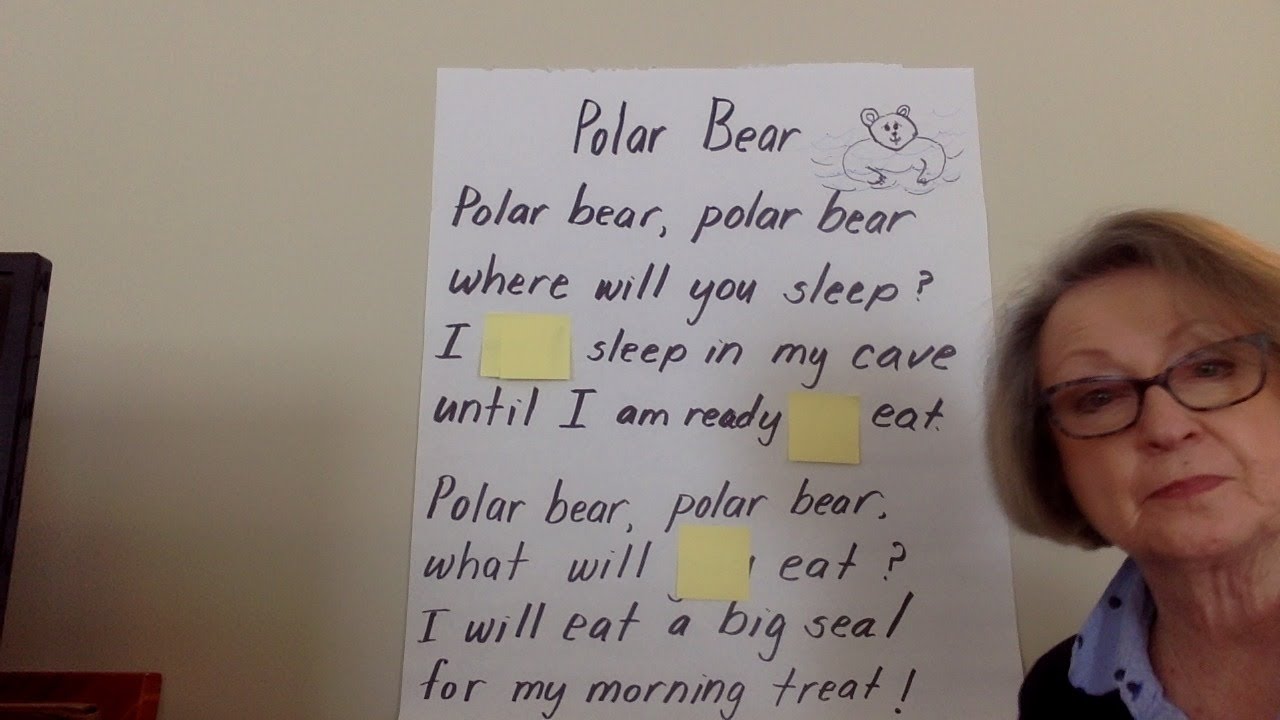 Polar Bear
Polar bear, polar bear
where will you sleep?
I sleep in my cave
until I am ready eat.
Polar bear, polar bear,
what will eat?
I will eat a big seal
for my morning treat!